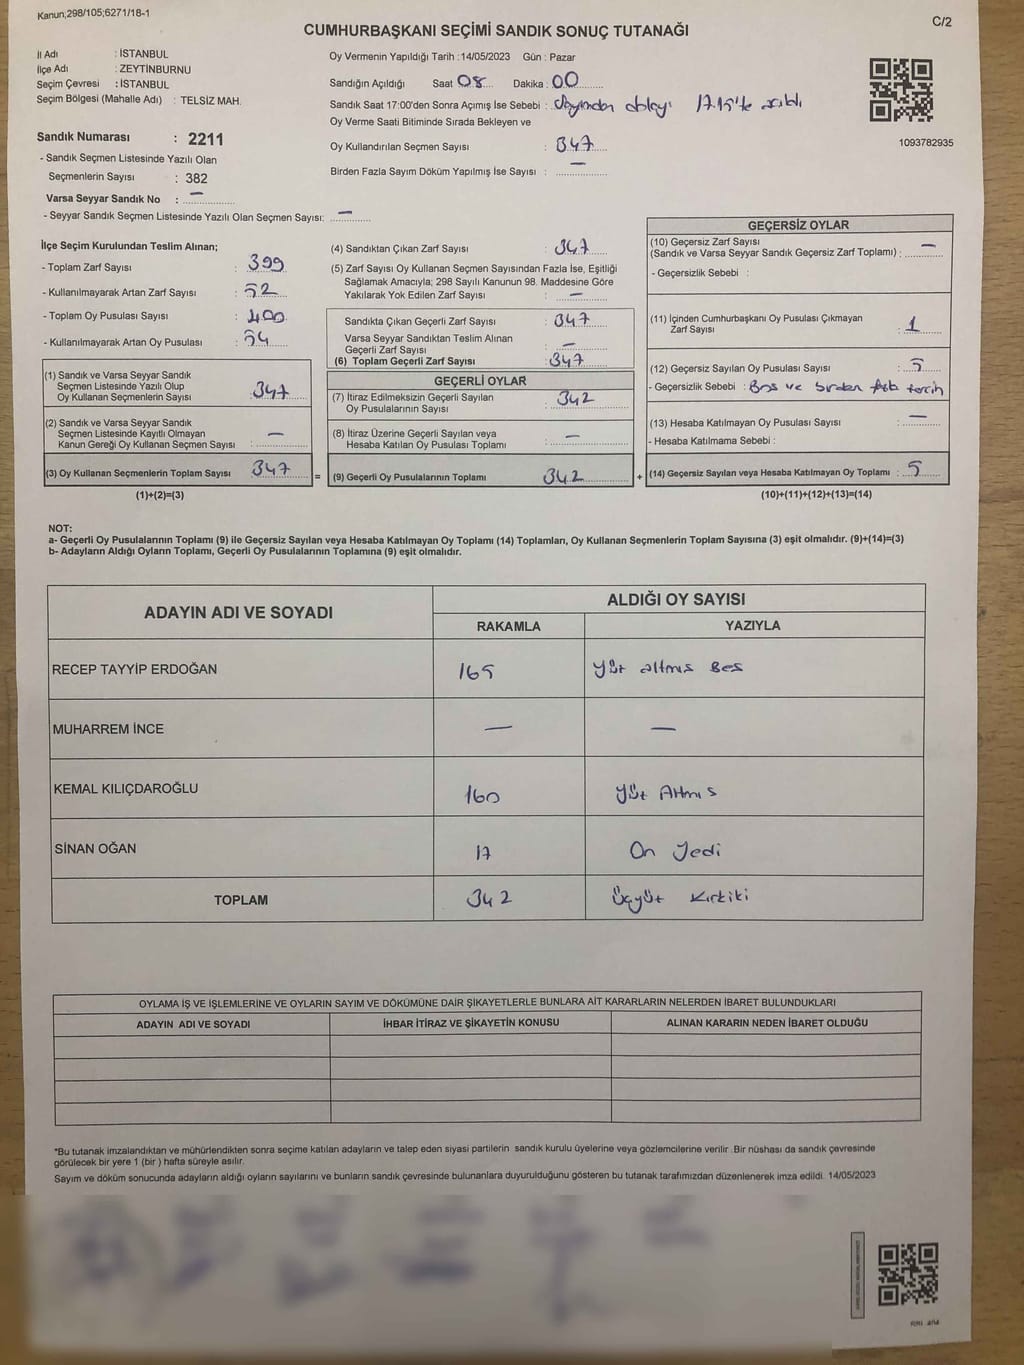 Kanun;298/105;6271/18-1
C/2
CUMHURBAŞKANI SEÇİMİ SANDIK SONUÇ TUTANAĞI
İl Adı : İSTANBUL
İlçe Adı : ZEYTİNBURNU
Seçim Çevresi : İSTANBUL
Seçim Bölgesi (Mahalle Adı) : TELSİZ MAH.
Sandık Numarası : 2211
- Sandık Seçmen Listesinde Yazılı Olan
Seçmenlerin Sayısı : 382
Varsa Seyyar Sandık No : —
- Seyyar Sandık Seçmen Listesinde Yazılı Olan Seçmen Sayısı: —
Oy Vermenin Yapıldığı Tarih :14/05/2023 Gün : Pazar
Sandığın Açıldığı Saat 08 Dakika : 00
Sandık Saat 17:00'den Sonra Açımış İse Sebebi : dolayı 17.15'te açıldı
Oy Verme Saati Bitiminde Sırada Bekleyen ve
Oy Kullandırılan Seçmen Sayısı : 347
Birden Fazla Sayım Döküm Yapılmış İse Sayısı : —
1093782935
İlçe Seçim Kurulundan Teslim Alınan;
- Toplam Zarf Sayısı : 399
- Kullanılmayarak Artan Zarf Sayısı : 52
- Toplam Oy Pusulası Sayısı : 400
- Kullanılmayarak Artan Oy Pusulası : 54
(1) Sandık ve Varsa Seyyar Sandık
Seçmen Listesinde Yazılı Olup
Oy Kullanan Seçmenlerin Sayısı : 347
(2) Sandık ve Varsa Seyyar Sandık
Seçmen Listesinde Kayıtlı Olmayan
Kanun Gereği Oy Kullanan Seçmen Sayısı : —
(3) Oy Kullanan Seçmenlerin Toplam Sayısı : 347 =
(1)+(2)=(3)
(4) Sandıktan Çıkan Zarf Sayısı : 347
(5) Zarf Sayısı Oy Kullanan Seçmen Sayısından Fazla İse, Eşitliği
Sağlamak Amacıyla; 298 Sayılı Kanunun 98. Maddesine Göre
Yakılarak Yok Edilen Zarf Sayısı : —
Sandıkta Çıkan Geçerli Zarf Sayısı : 347
Varsa Seyyar Sandıktan Teslim Alınan
Geçerli Zarf Sayısı : —
(6) Toplam Geçerli Zarf Sayısı : 347
GEÇERLİ OYLAR
(7) İtiraz Edilmeksizin Geçerli Sayılan
Oy Pusulalarının Sayısı : 342
(8) İtiraz Üzerine Geçerli Sayılan veya
Hesaba Katılan Oy Pusulası Toplamı : —
(9) Geçerli Oy Pusulalarının Toplamı 342 +
GEÇERSİZ OYLAR
(10) Geçersiz Zarf Sayısı
(Sandık ve Varsa Seyyar Sandık Geçersiz Zarf Toplamı) : —
- Geçersizlik Sebebi :
(11) İçinden Cumhurbaşkanı Oy Pusulası Çıkmayan
Zarf Sayısı : 1
(12) Geçersiz Sayılan Oy Pusulası Sayısı : 5
- Geçersizlik Sebebi : Boş ve birden fazla tercih
(13) Hesaba Katılmayan Oy Pusulası Sayısı : —
- Hesaba Katılmama Sebebi :
(14) Geçersiz Sayılan veya Hesaba Katılmayan Oy Toplamı : 5
(10)+(11)+(12)+(13)=(14)
NOT:
a- Geçerli Oy Pusulalarının Toplamı (9) ile Geçersiz Sayılan veya Hesaba Katılmayan Oy Toplamı (14) Toplamları, Oy Kullanan Seçmenlerin Toplam Sayısına (3) eşit olmalıdır. (9)+(14)=(3)
b- Adayların Aldığı Oyların Toplamı, Geçerli Oy Pusulalarının Toplamına (9) eşit olmalıdır.
ADAYIN ADI VE SOYADI
ALDIĞI OY SAYISI
RAKAMLA YAZIYLA
RECEP TAYYİP ERDOĞAN 165 Yüz altmış Beş
MUHARREM İNCE — —
KEMAL KILIÇDAROĞLU 160 Yüz Altmış
SİNAN OĞAN 17 On Yedi
TOPLAM 342 Üçyüz Kırkiki
OYLAMA İŞ VE İŞLEMLERİNE VE OYLARIN SAYIM VE DÖKÜMÜNE DAİR ŞİKAYETLERLE BUNLARA AİT KARARLARIN NELERDEN İBARET BULUNDUKLARI
ADAYIN ADI VE SOYADI İHBAR İTİRAZ VE ŞİKAYETİN KONUSU ALINAN KARARIN NEDEN İBARET OLDUĞU
*Bu tutanak imzalandıktan ve mühürlendikten sonra seçime katılan adayların ve talep eden siyasi partilerin sandık kurulu üyelerine veya gözlemcilerine verilir .Bir nüshası da sandık çevresinde
görülecek bir yere 1 (bir ) hafta süreyle asılır.
Sayım ve döküm sonucunda adayların aldığı oyların sayılarını ve bunların sandık çevresinde bulunanlara duyurulduğunu gösteren bu tutanak tarafımızdan düzenlenerek imza edildi. 14/05/2023